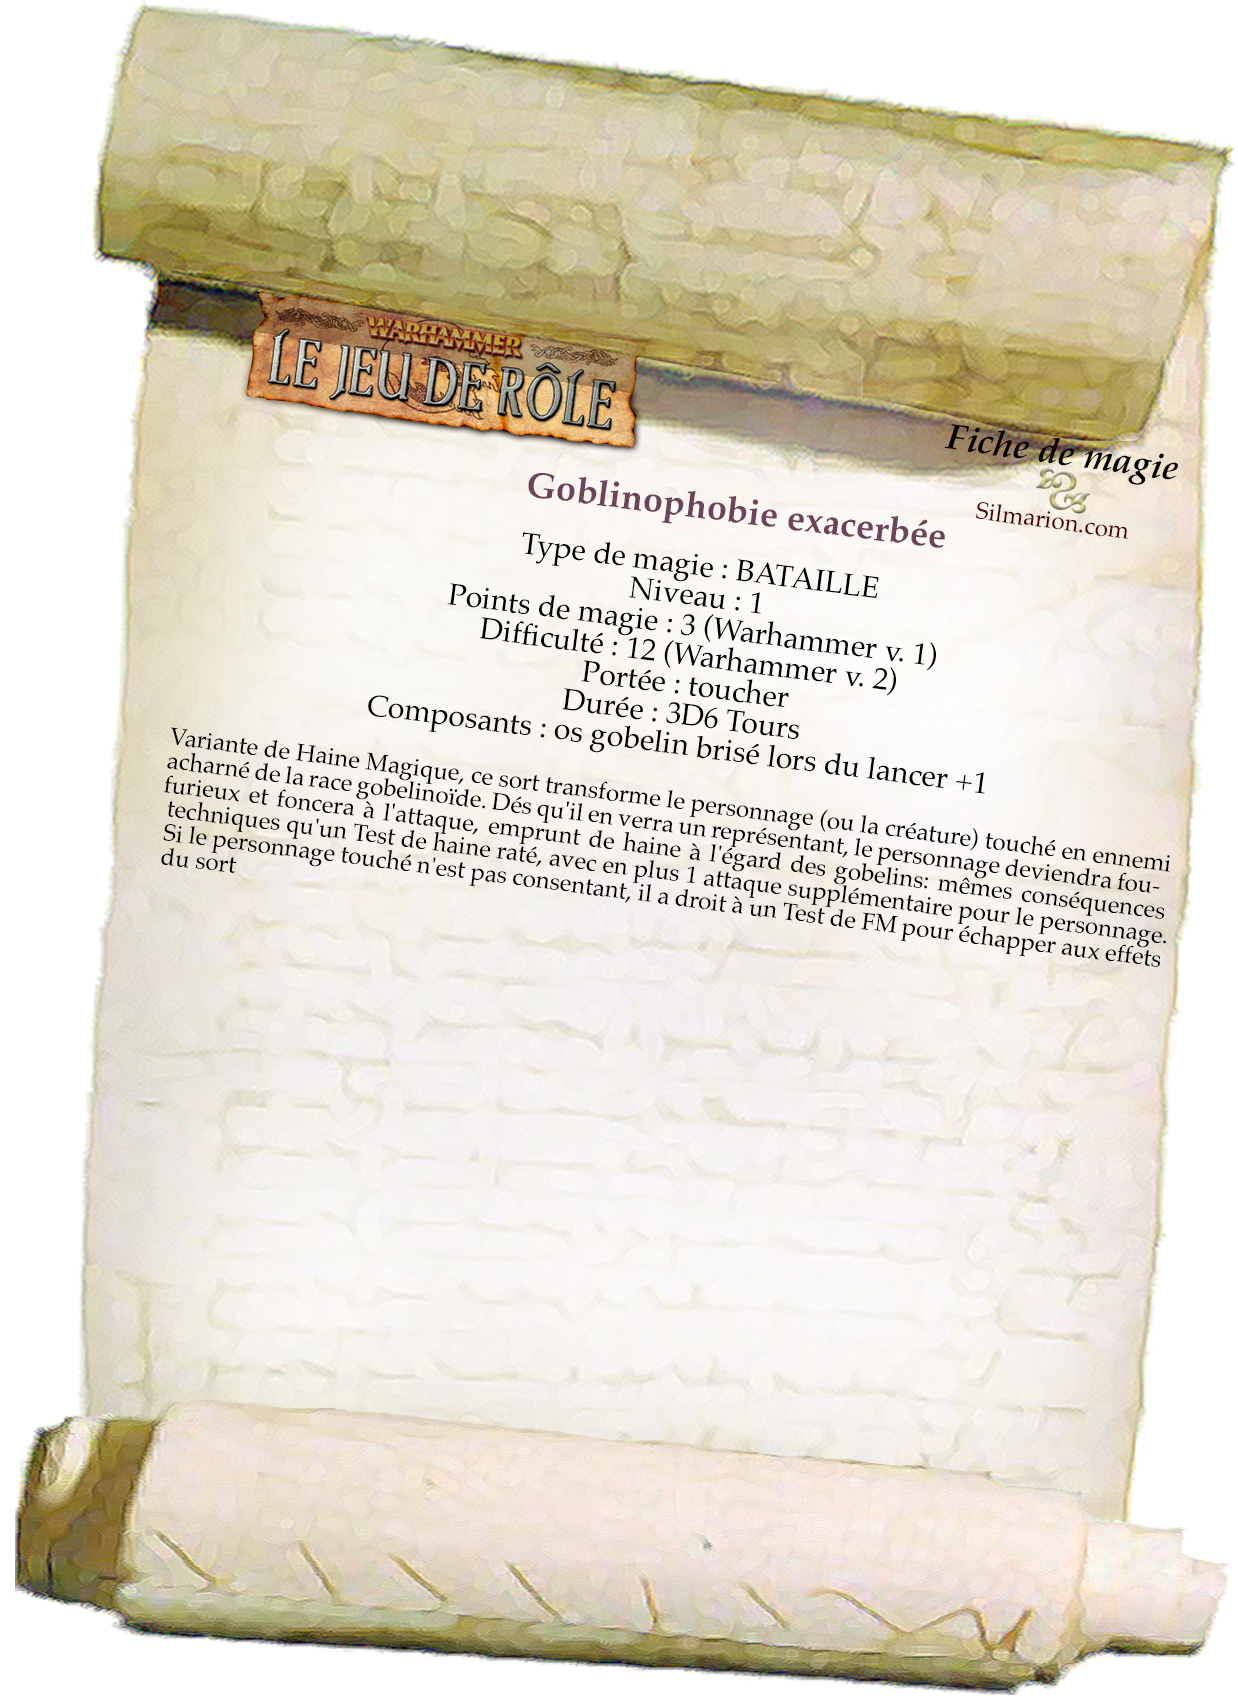 WARHAMMER
LE JEU DE RÔLE
Fiche de magie
Silmarion.com
Goblinophobie exacerbée
Type de magie : BATAILLE
Niveau : 1
Points de magie : 3 (Warhammer v. 1)
Difficulté : 12 (Warhammer v. 2)
Portée : toucher
Durée : 3D6 Tours
Composants : os gobelin brisé lors du lancer +1
Variante de Haine Magique, ce sort transforme le personnage (ou la créature) touché en ennemi
acharné de la race gobelinoïde. Dés qu'il en verra un représentant, le personnage deviendra fou-
furieux et foncera à l'attaque, emprunt de haine à l'égard des gobelins: mêmes conséquences
techniques qu'un Test de haine raté, avec en plus 1 attaque supplémentaire pour le personnage.
Si le personnage touché n'est pas consentant, il a droit à un Test de FM pour échapper aux effets
du sort